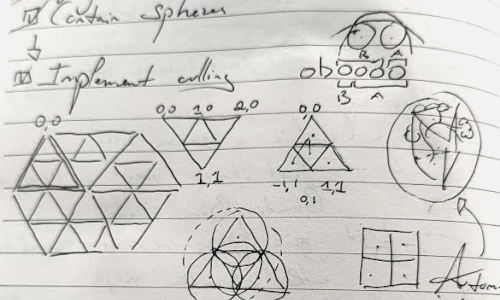 Contain Spheres
Implement culling
B A
ob
B A
0,0
0,0 1,0 2,0
1,1
0,0
-1,1 1,1
0,1